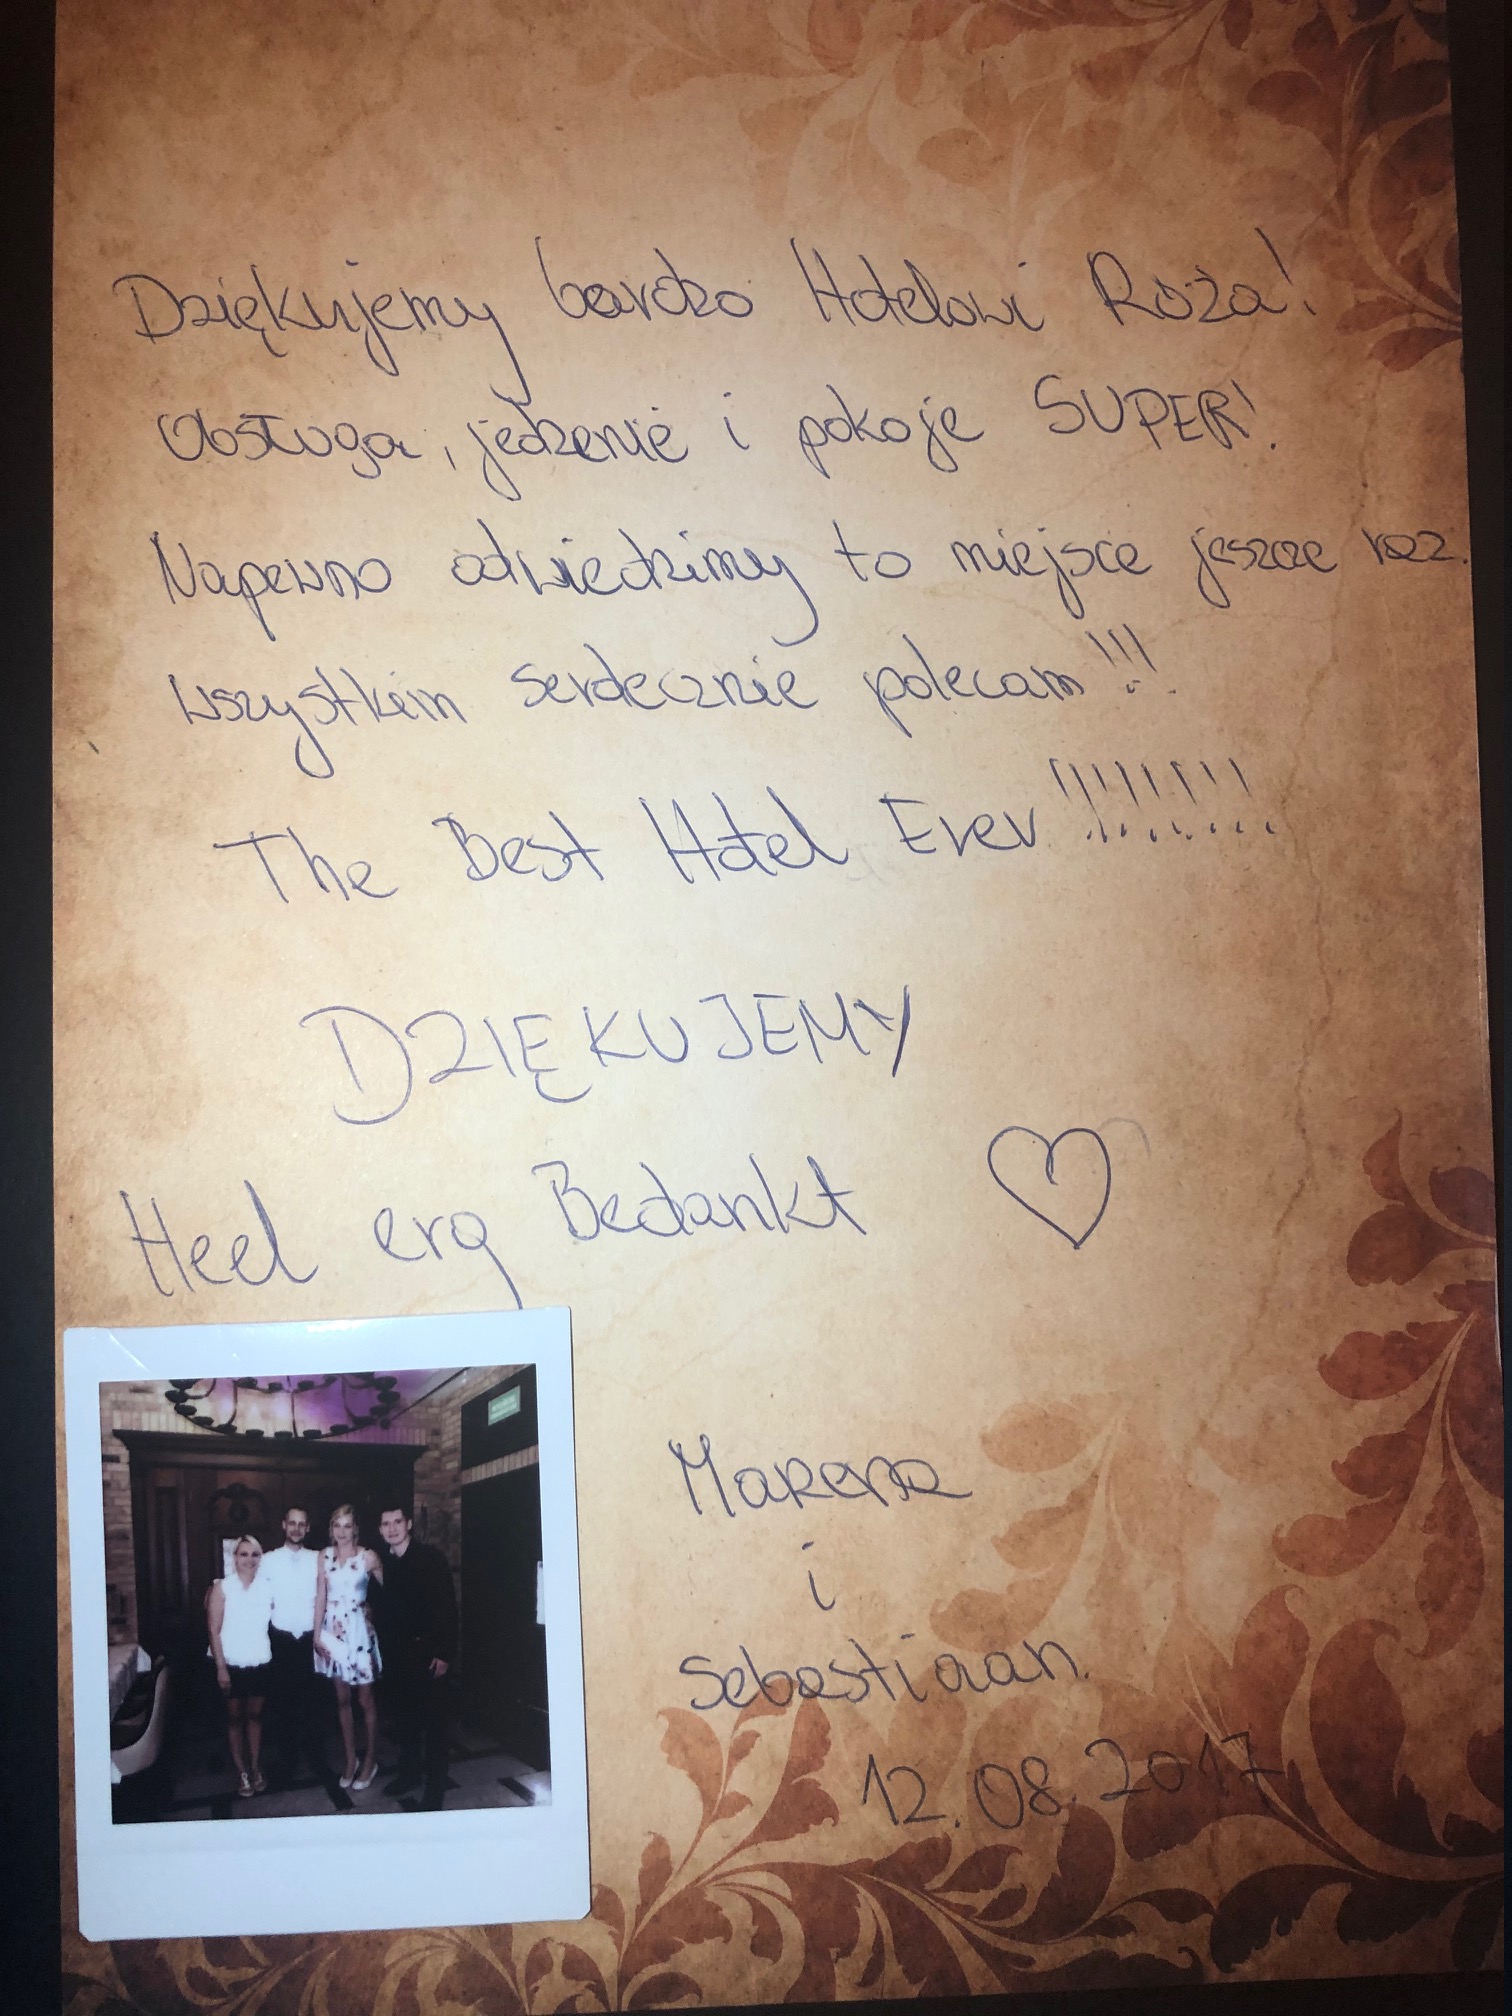 Dziękujemy bardzo Hotelowi Róża!
Obsługa, jedzenie i pokoje SUPER!
Napewno odwiedzimy to miejsce jeszcze raz.
Wszystkim serdecznie polecam!!!
The Best Hotel Ever!!!!!!!!
DZIĘKUJEMY
Heel erg Bedankt
i
Sebastiaan.
12.08.2017